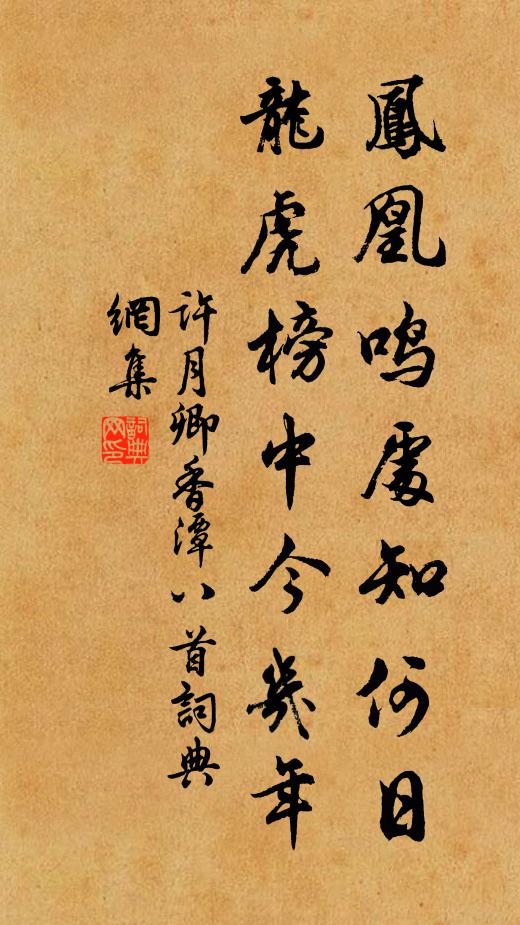 鳳凰鳴處知何日
龍虎榜中今幾年
許月卿香潭八首詞典
網集
詞典網印